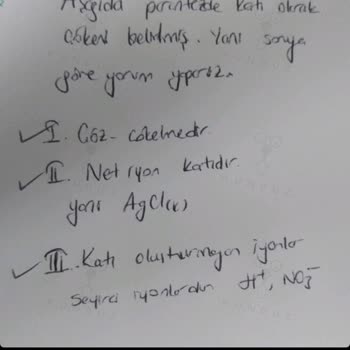 Aşağıda parantezde katı olarak
çöken belirtilmiş. Yani soruya
göre yorum yaparız.
I. Çöz-çökelmedir
II. Net iyon katıdır
yani AgCl(k)
III. Katı oluşturmayan iyonlar
seyirci iyonlardır H⁺, NO₃⁻